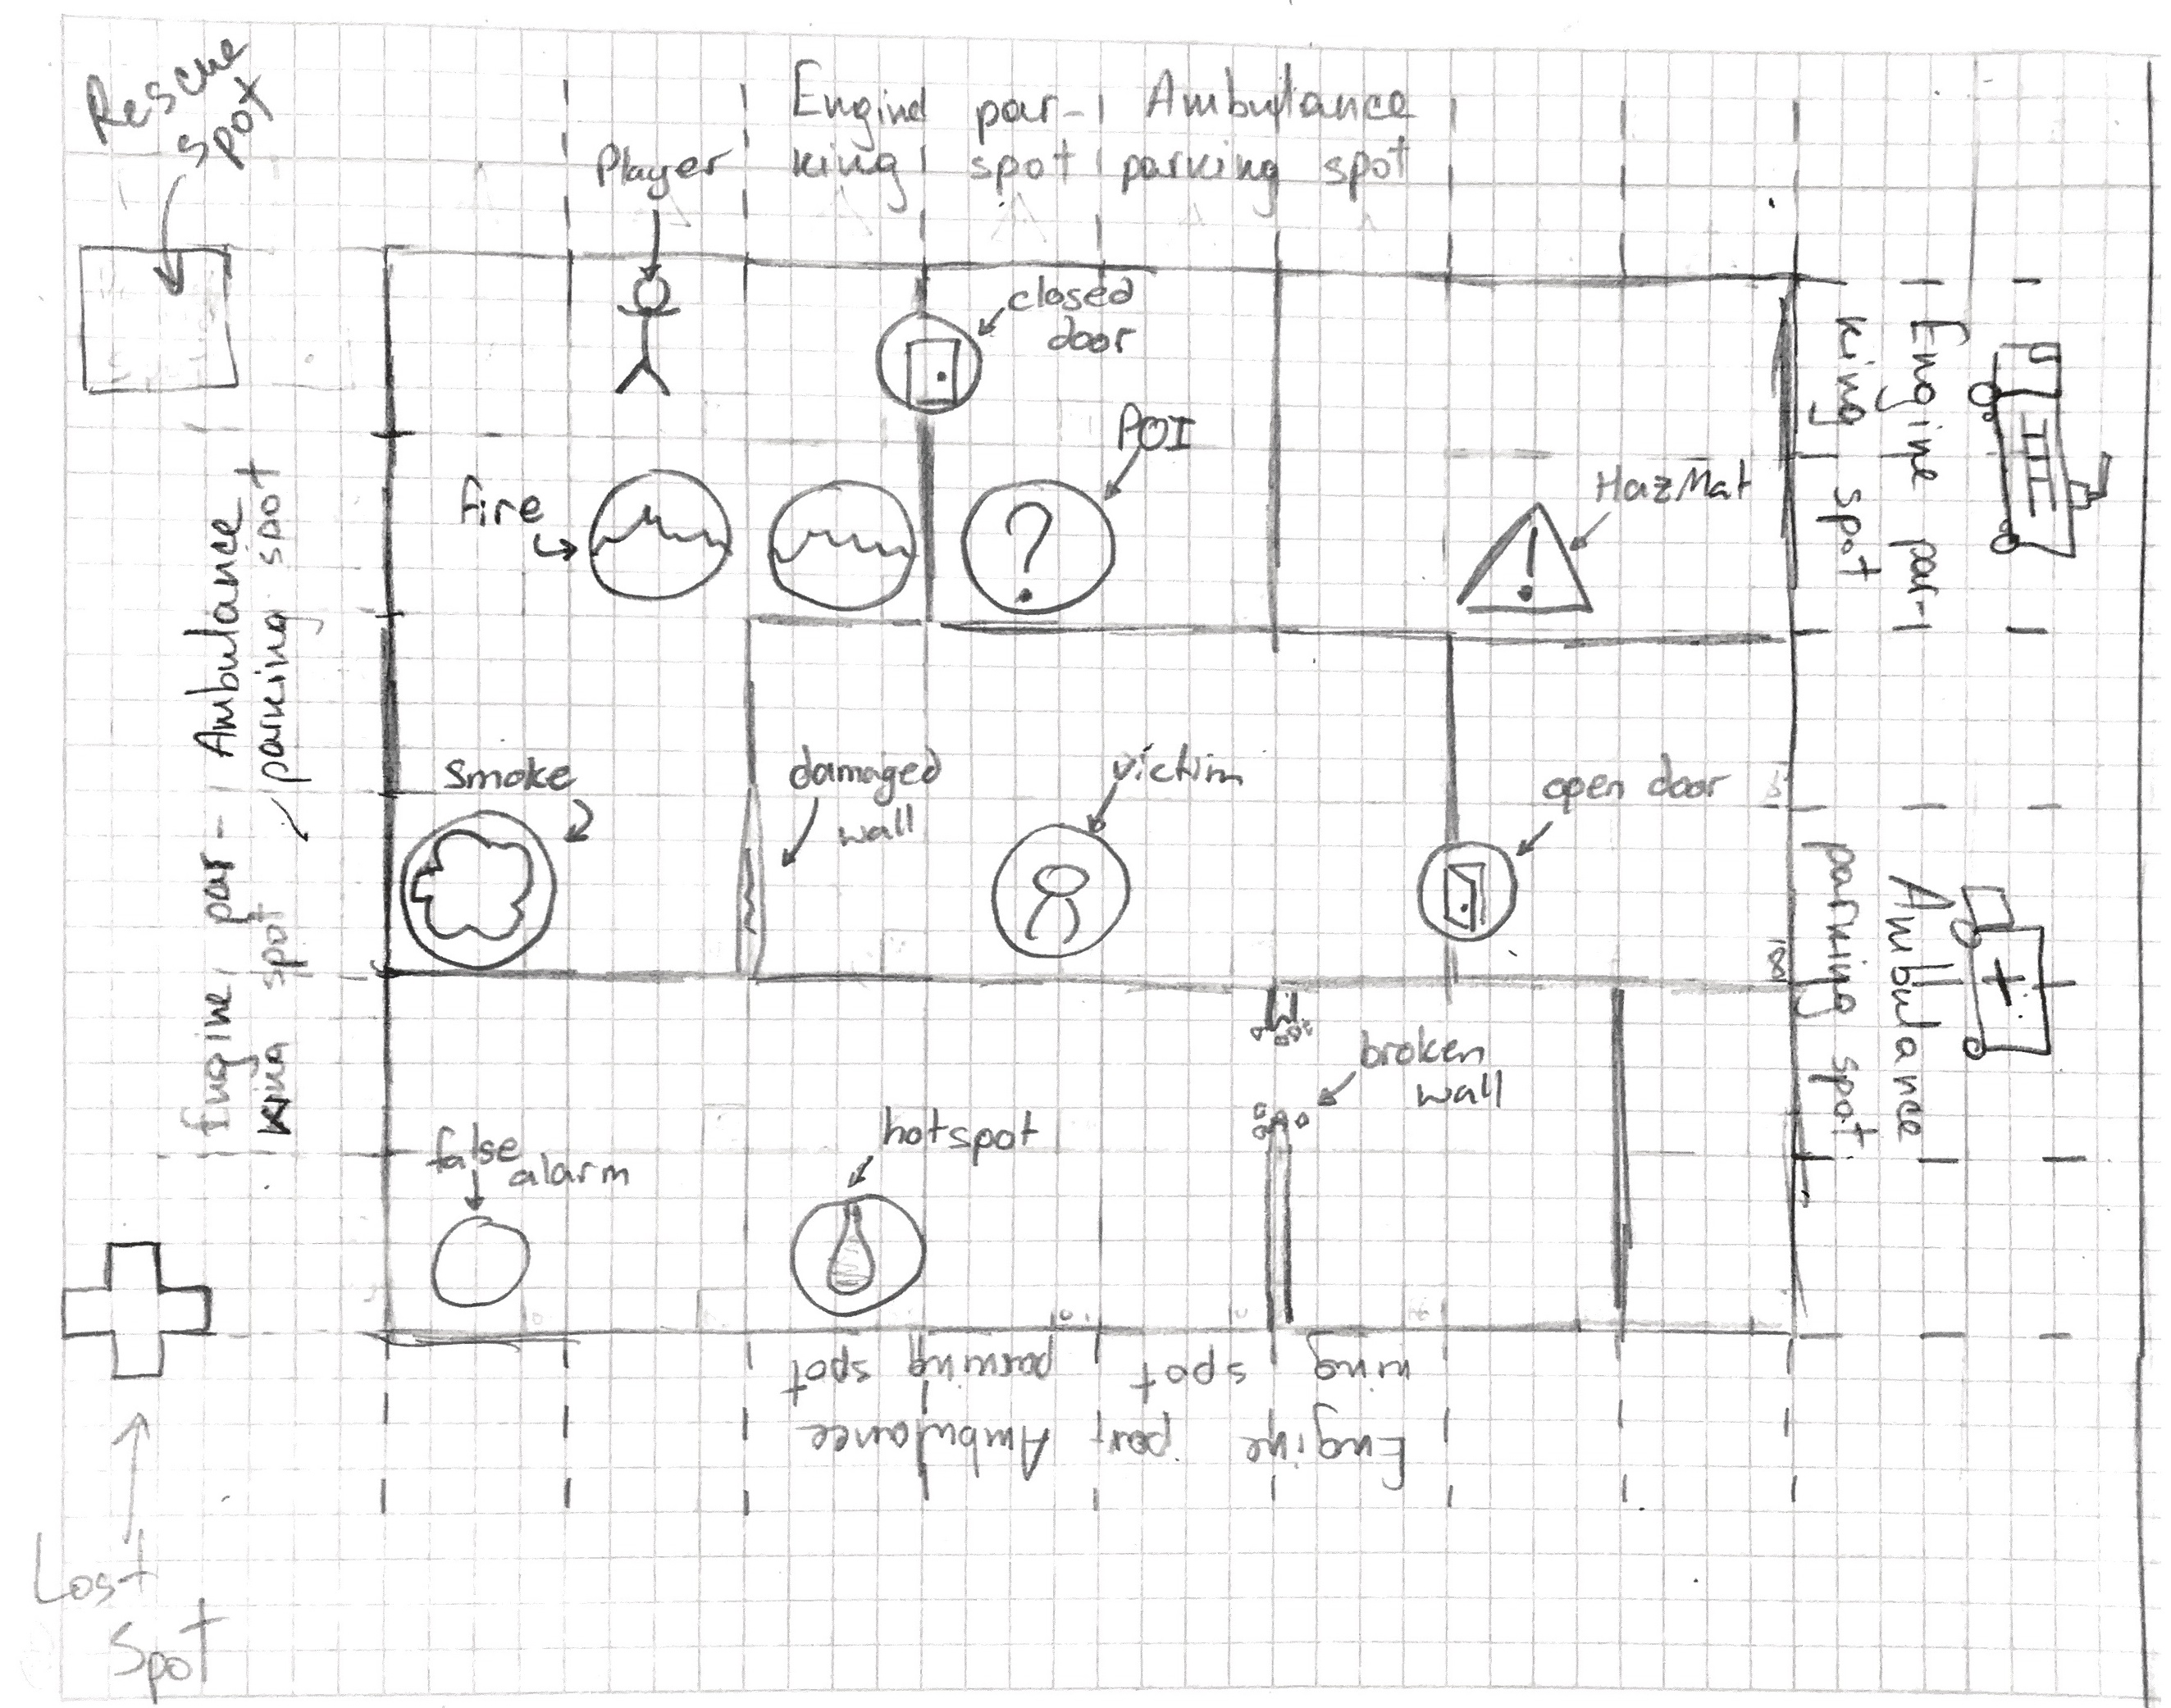 Rescue
spot
Engine par-
king spot
Ambulance
parking spot
Player
closed
door
POI
fire
HazMat
Engine par-
king spot
Ambulance
parking spot
Smoke
damaged
wall
victim
open door
Ambulance
parking spot
Engine par-
king spot
broken
wall
false
alarm
hotspot
Engine par-
king spot
Ambulance
parking spot
Lost
Spot